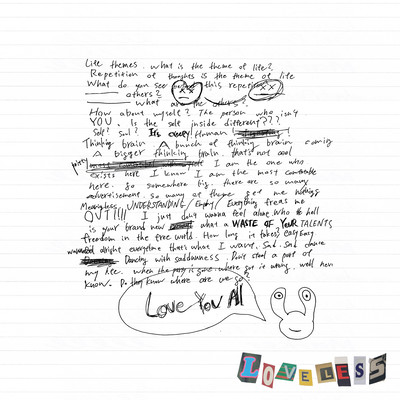 Life themes. what is the theme of life?
Repetition of thoughts is the theme of life
What do you see this repetition
others?
what are the others?
How about myself? The person who isn't
YOU. Is the self inside different???
Self? Soul? It's Human
Thinking brain A bunch of thinking brain coming
A bigger thinking brain. that's not cool
I am the one who
exists here I know I am the most comfortable
here. go somewhere big. there are so many
advertisement so many of them get me nothing
Meaningless UNDERSTANDING/Empty/Everything treats me
OUT!!!! I just don't wanna feel alone Who the hell
is your brand new what a WASTE OF YOUR TALENTS
freedom in the free world. How long it takes? easy easy
alright everytime that's what I want. Sad. Sad dance
Dancing with saddnness. Don't steal a part of
my life. when the is gone where got it wrong. we'll never
know. Do they know where are we go?
Love You All
LOVELESS